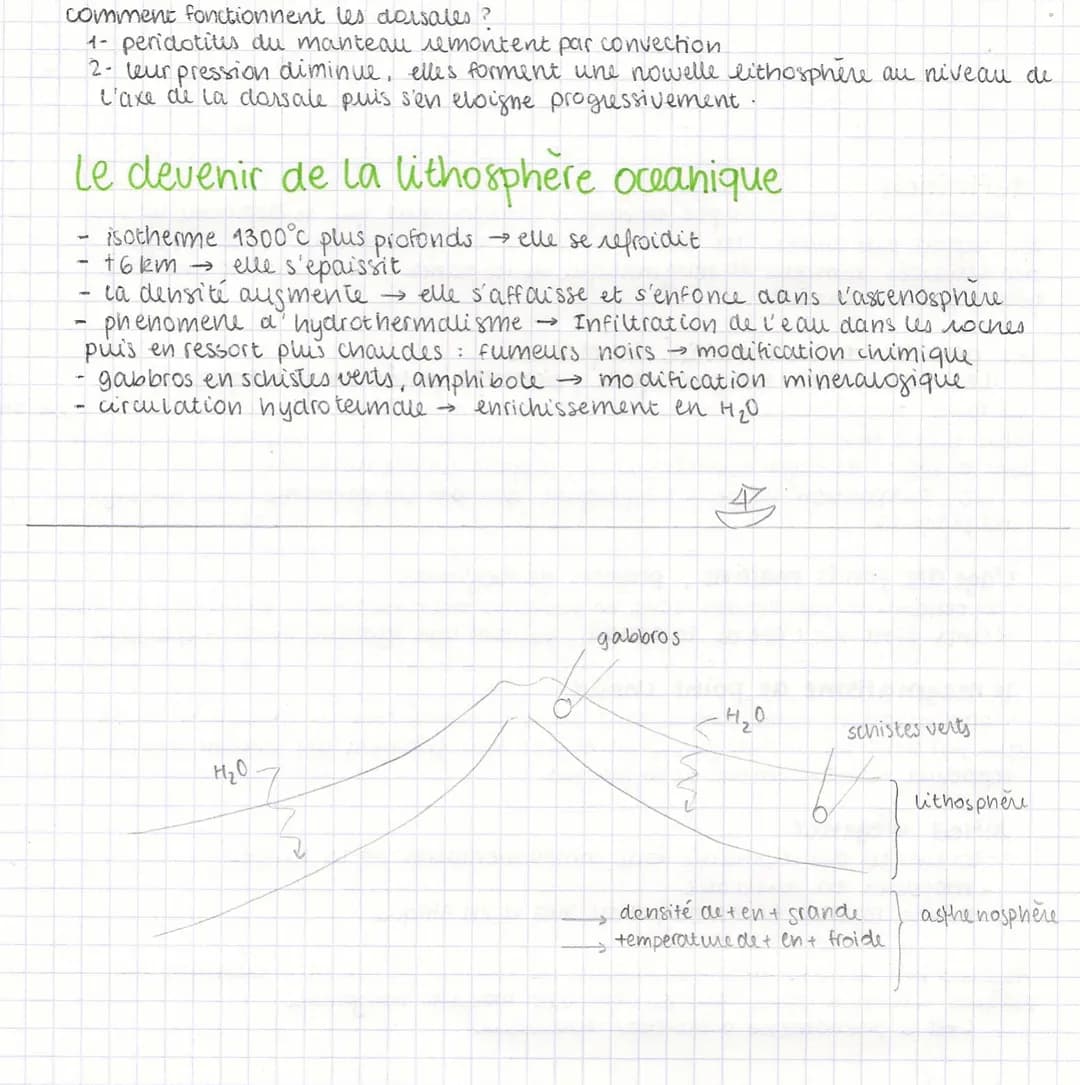 comment fonctionnent les dorsales ?
1- peridotites du manteau remontent par convection
2- leur pression diminue, elles forment une nouvelle lithosphère au niveau de
l'axe de la dorsale puis s'en eloigne progressivement.
Le devenir de la lithosphère oceanique
- isotherme 1300°C plus profonds → elle se refroidit
- +6km → elle s'epaissit
- la densité augmente → elle s'affaisse et s'enfonce dans l'ascenosphère
- phenomene d'hydrothermalisme → Infiltration de l'eau dans les roches
puis en ressort plus chaudes : fumeurs noirs → modification chimique
- gabbros en schistes verts, amphibote → modification mineralogique
- circulation hydrotermale → enrichissement en H₂O
gabbros
H₂O
schistes verts
H₂O
lithosphère
→ densité de + en + grande
asthenosphère
→ temperature de + en + froide